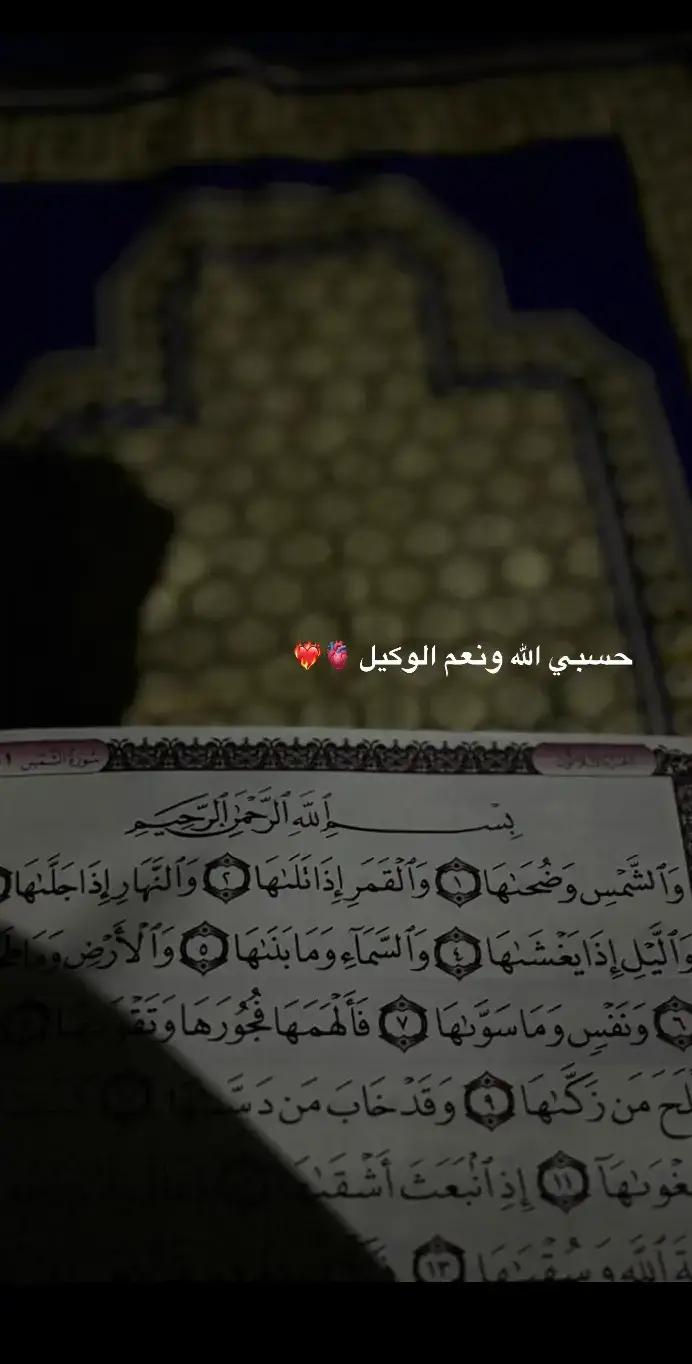 حسبي الله ونعم الوكيل 🫀❤️‍🔥
سورة الشمس
بِسْمِ ٱللَّهِ ٱلرَّحْمَٰنِ ٱلرَّحِيمِ
وَٱلشَّمْسِ وَضُحَىٰهَا ١ وَٱلْقَمَرِ إِذَا تَلَىٰهَا ٢ وَٱلنَّهَارِ إِذَا جَلَّىٰهَا
وَٱلَّيْلِ إِذَا يَغْشَىٰهَا ٤ وَٱلسَّمَآءِ وَمَا بَنَىٰهَا ٥ وَٱلْأَرْضِ وَمَا
٦ وَنَفْسٍ وَمَا سَوَّىٰهَا ٧ فَأَلْهَمَهَا فُجُورَهَا وَتَقْوَىٰهَا
مَن زَكَّىٰهَا ٩ وَقَدْ خَابَ مَن دَسَّىٰهَا
١١ إِذِ ٱنۢبَعَثَ أَشْقَىٰهَا
ٱللَّهِ وَسُقْيَٰهَا ١٣